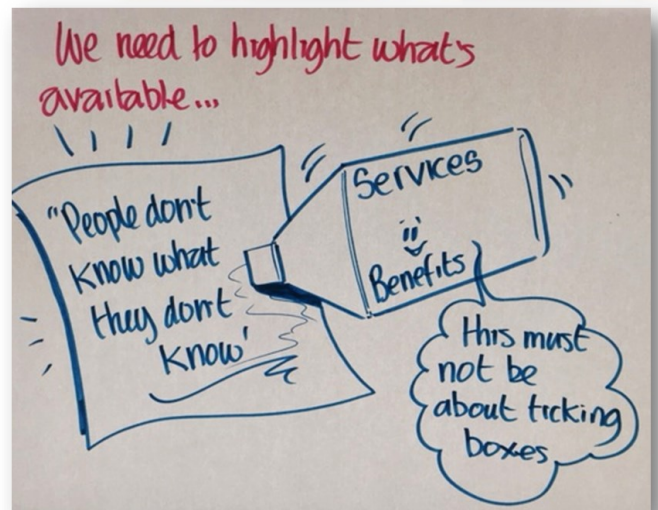 We need to highlight what's
available...
"People don't
know what
they don't
know'
Services
Benefits
this must
not be
about ticking
boxes